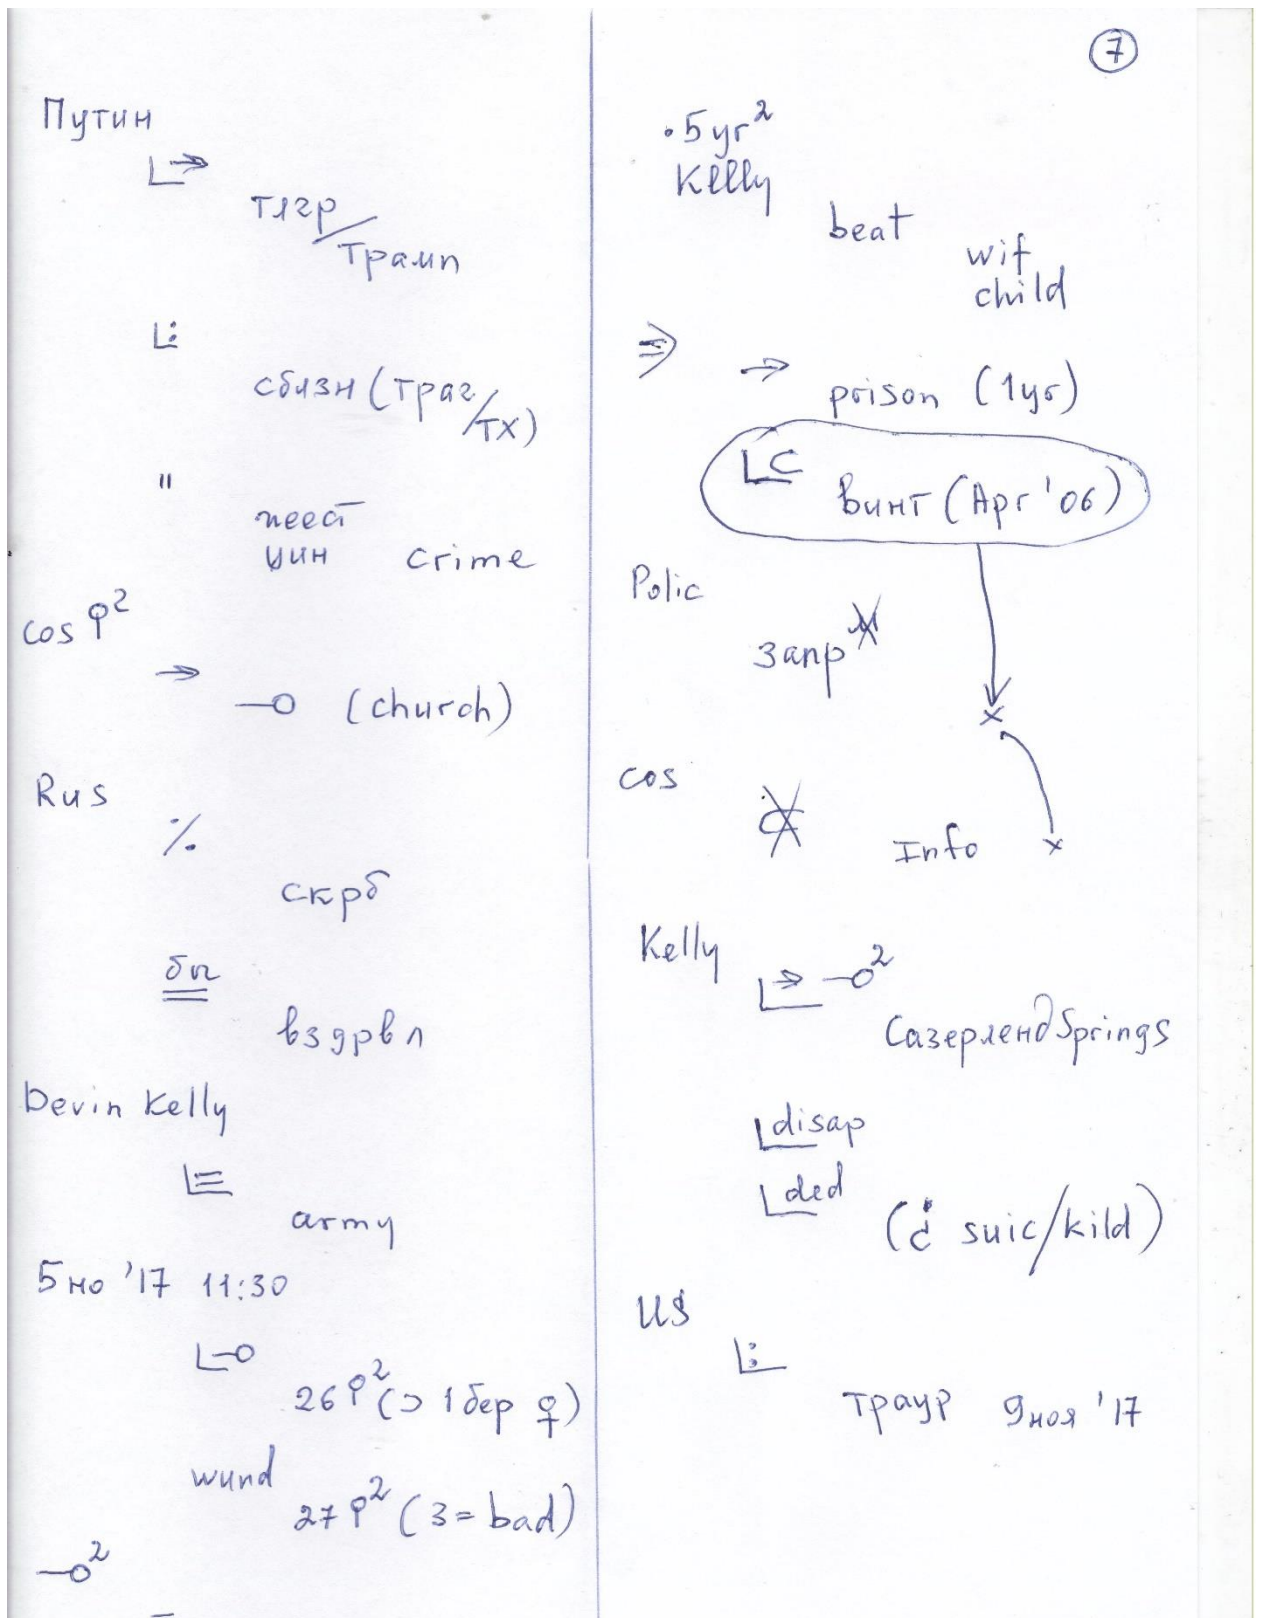 7
Путин
тлгр/
Трамп
сблзн (траг/
тх)
"
жест
цин crime
cos ♀²
(church)
Rus
скрб
бы
вздрвл
Devin Kelly
army
5 но '17 11:30
26 ♀² (⊃ 1 бер ♀)
wund
27 ♀² (3 = bad)
• 5 yr²
Kelly
beat
wif
child
prison (1yr)
винт (Apr '06)
Polic
запр
cos
Info
Kelly
Сазерленд Springs
disap
ded
(¿ suic/kild)
US
траур 9 ноя '17